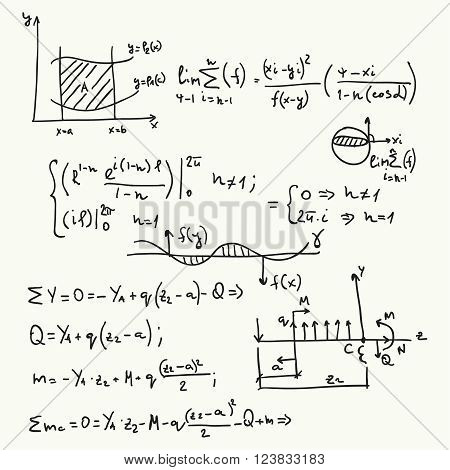 y
y=f₂(x)
A
y=f₁(x)
x=a x=b x
lim 4-1 n Σ i=n-1 (f) = (xi-yi)² / f(x-y) ( 4-xi / 1-n(cosα) )
xi
lim n Σ i=n-1 (f)
{ (ℓ^(1-n) e^(i(1-n)ℓ) / 1-n) |₀^2π n≠1;
(iℓ)|₀^2π n=1
= { 0 => n≠1
2π.i => n=1
f(y) γ
f(x)
ΣY=0=-Y_A+q(z₂-a)-Q=>
Q=Y_A+q(z₂-a);
m=-Y_A·z₂+M+q (z₂-a)²/2;
Σmc=0=Y_A·z₂-M-q (z₂-a)²/2 -Q+m=>
Y
M M
q z
C Q N
a
z₂